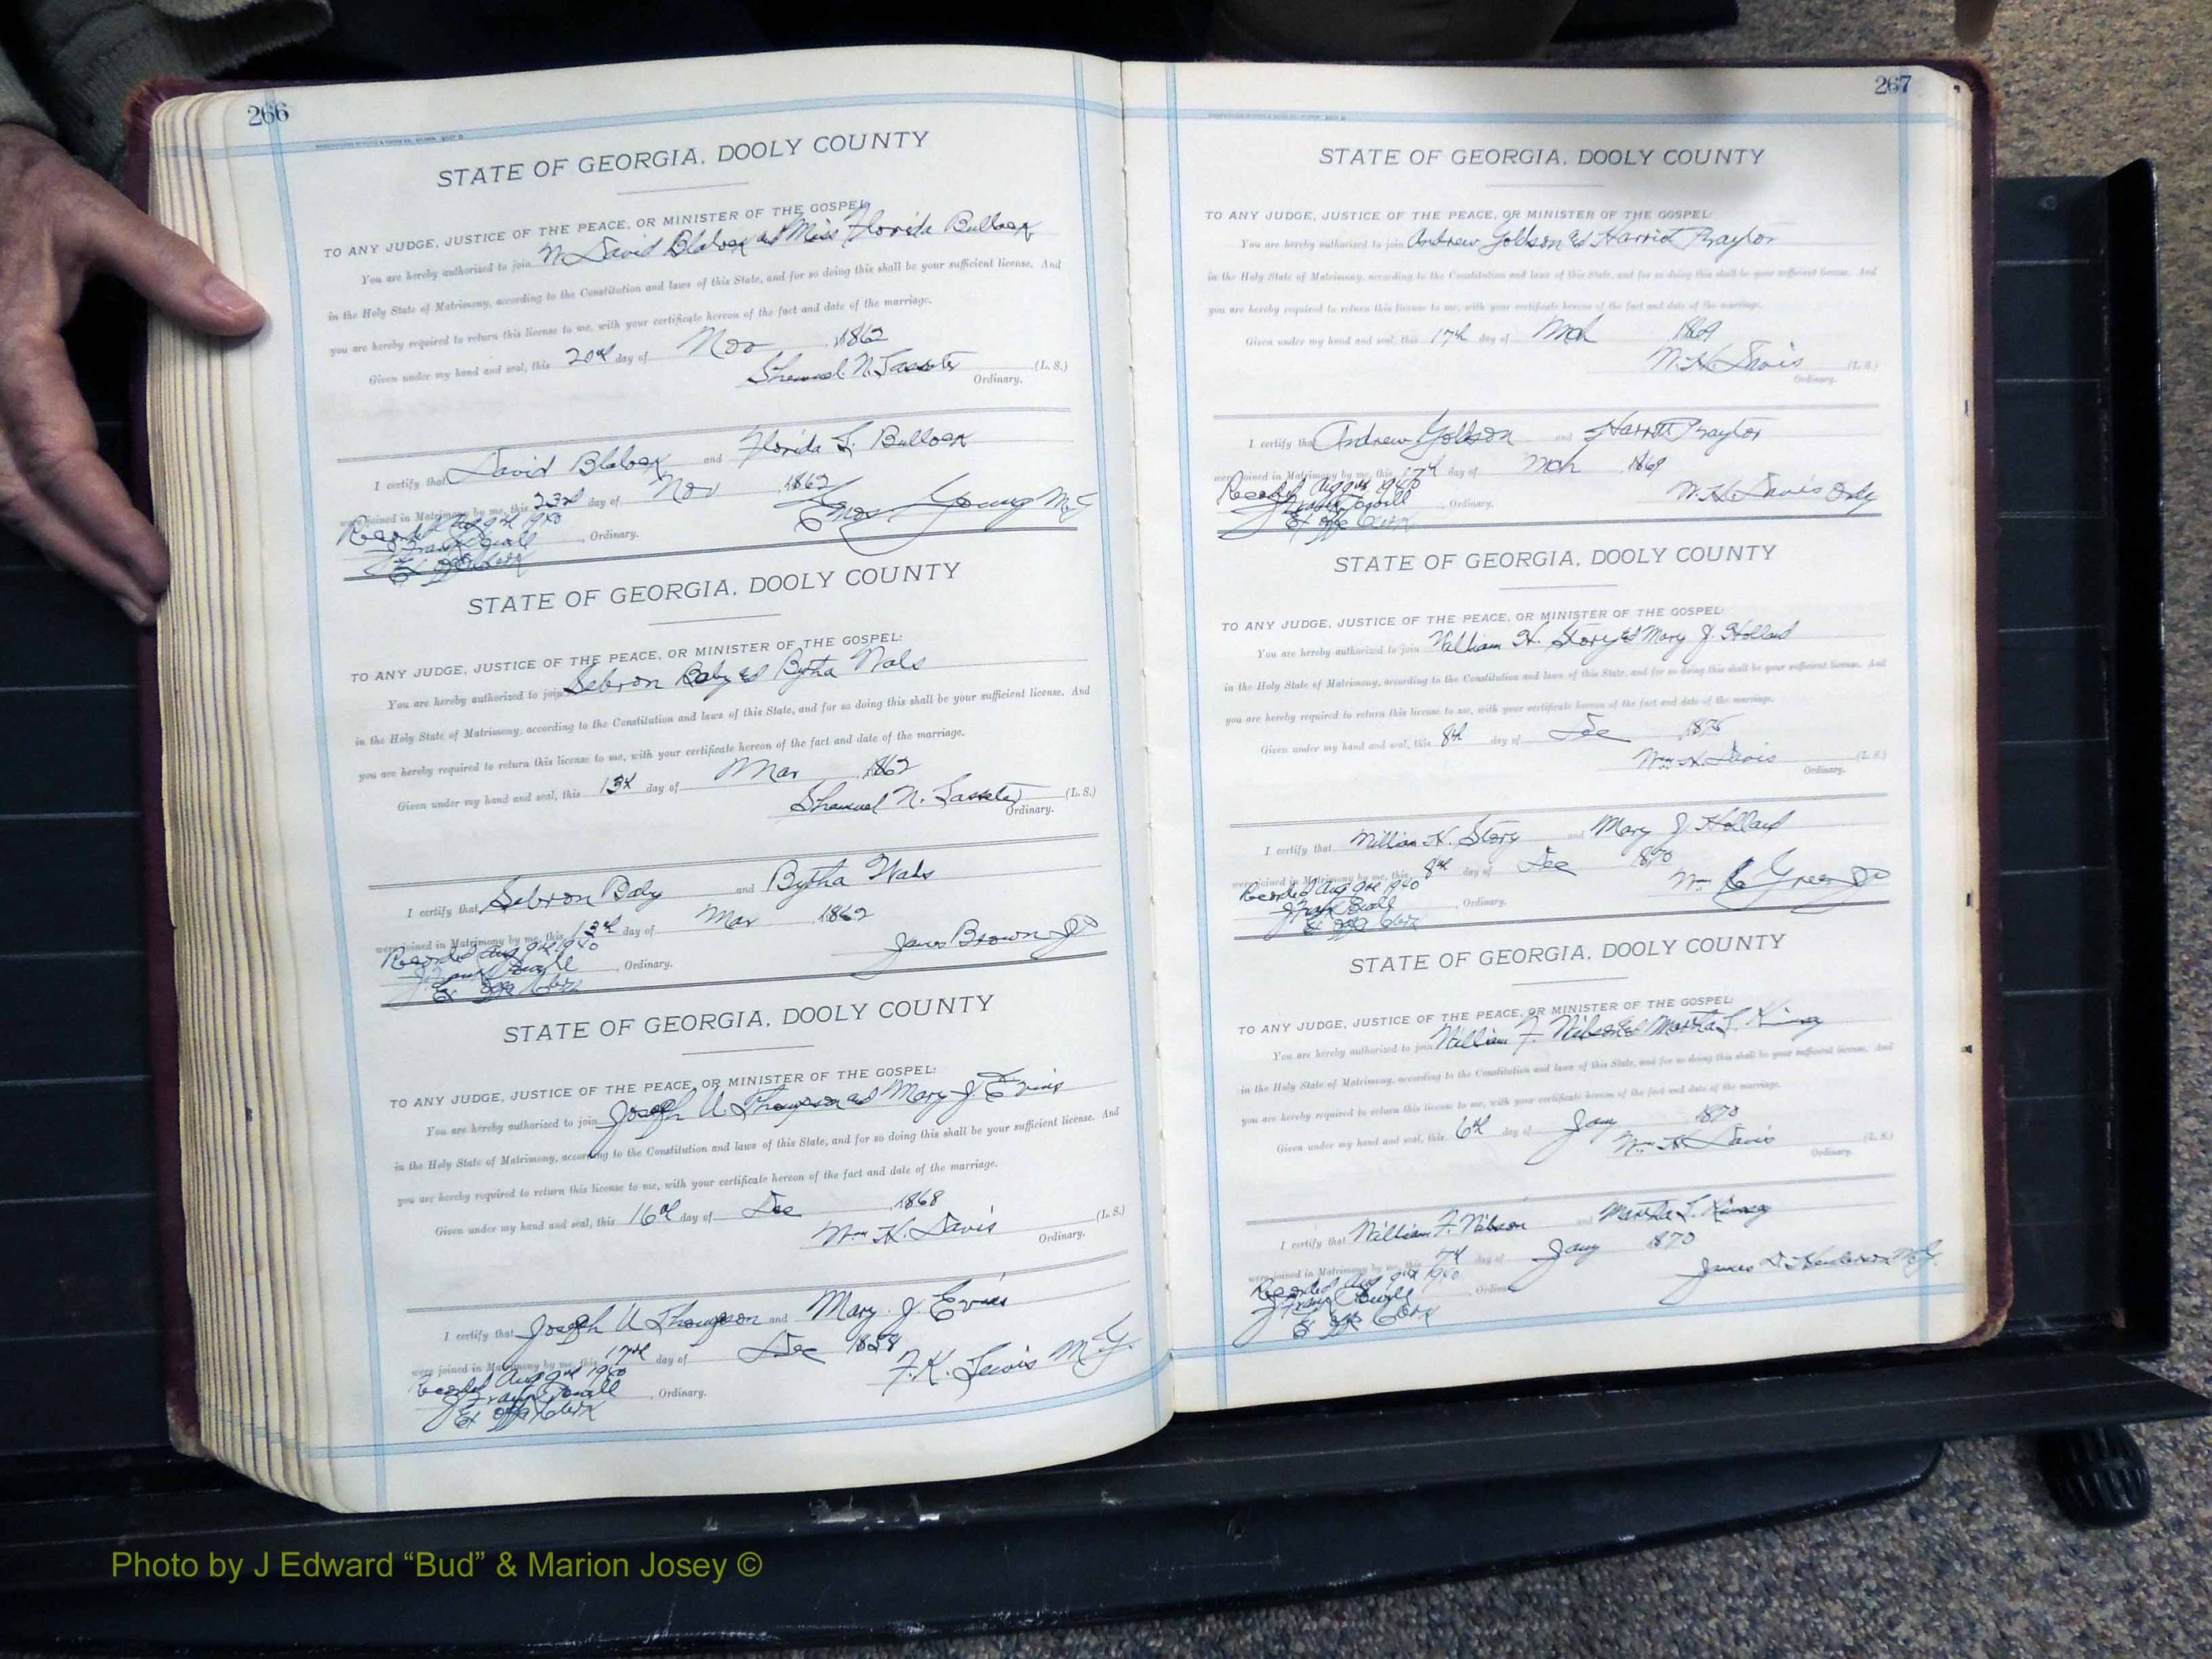 266
STATE OF GEORGIA, DOOLY COUNTY
TO ANY JUDGE, JUSTICE OF THE PEACE, OR MINISTER OF THE GOSPEL:
You are hereby authorized to join David Blalock and Miss Florida Bullock
in the Holy State of Matrimony, according to the Constitution and laws of this State, and for so doing this shall be your sufficient license. And
you are hereby required to return this license to me, with your certificate hereon of the fact and date of the marriage.
Given under my hand and seal, this 20th day of Nov 1862
(L. S.)
Ordinary.
I certify that David Blalock and Florida L. Bullock
were joined in Matrimony by me, this 23rd day of Nov 1862
Young M G
Recorded Aug 9th 1940
, Ordinary.
Ex off Clerk
STATE OF GEORGIA, DOOLY COUNTY
TO ANY JUDGE, JUSTICE OF THE PEACE, OR MINISTER OF THE GOSPEL:
You are hereby authorized to join Sebron Baby and Bytha
in the Holy State of Matrimony, according to the Constitution and laws of this State, and for so doing this shall be your sufficient license. And
you are hereby required to return this license to me, with your certificate hereon of the fact and date of the marriage.
Given under my hand and seal, this 13th day of Mar 1862
N. Lasseter (L. S.)
Ordinary.
I certify that Sebron and Bytha
were joined in Matrimony by me, this 13th day of Mar 1862
James Brown JP
Recorded Aug 9th 1940
, Ordinary.
Ex off Clerk
STATE OF GEORGIA, DOOLY COUNTY
TO ANY JUDGE, JUSTICE OF THE PEACE, OR MINISTER OF THE GOSPEL:
You are hereby authorized to join Joseph U Thompson and Mary J. Evins
in the Holy State of Matrimony, according to the Constitution and laws of this State, and for so doing this shall be your sufficient license. And
you are hereby required to return this license to me, with your certificate hereon of the fact and date of the marriage.
Given under my hand and seal, this 16th day of Dec 1868
Wm H. Davis (L. S.)
Ordinary.
I certify that Joseph U Thompson and Mary J. Evins
were joined in Matrimony by me, this 17th day of Dec 1858
F. K. Lewis M. G.
Recorded Aug 9th 1940
, Ordinary.
Ex off Clerk
267
STATE OF GEORGIA, DOOLY COUNTY
TO ANY JUDGE, JUSTICE OF THE PEACE, OR MINISTER OF THE GOSPEL:
You are hereby authorized to join Andrew Goldson and Harriot Traylor
in the Holy State of Matrimony, according to the Constitution and laws of this State, and for so doing this shall be your sufficient license. And
you are hereby required to return this license to me, with your certificate hereon of the fact and date of the marriage.
Given under my hand and seal, this 17th day of Mch 1869
W. H. Davis (L. S.)
Ordinary.
I certify that Andrew Goldson and Harritt Traylor
were joined in Matrimony by me, this 17th day of Mch 1869
W. H. Davis Ordy
Recorded Aug 9th 1940
, Ordinary.
Ex off Clerk
STATE OF GEORGIA, DOOLY COUNTY
TO ANY JUDGE, JUSTICE OF THE PEACE, OR MINISTER OF THE GOSPEL:
You are hereby authorized to join William H. Story and Mary J. Holland
in the Holy State of Matrimony, according to the Constitution and laws of this State, and for so doing this shall be your sufficient license. And
you are hereby required to return this license to me, with your certificate hereon of the fact and date of the marriage.
Given under my hand and seal, this 8th day of Dec
Wm H. Davis (L. S.)
Ordinary.
I certify that William H. Story and Mary J. Holland
were joined in Matrimony by me, this 8th day of Dec 1870
Wm Green JP
Recorded Aug 9th 1940
, Ordinary.
Ex off Clerk
STATE OF GEORGIA, DOOLY COUNTY
TO ANY JUDGE, JUSTICE OF THE PEACE, OR MINISTER OF THE GOSPEL:
You are hereby authorized to join William F. and Martha L. Kinsey
in the Holy State of Matrimony, according to the Constitution and laws of this State, and for so doing this shall be your sufficient license. And
you are hereby required to return this license to me, with your certificate hereon of the fact and date of the marriage.
Given under my hand and seal, this 6th day of Jany 1870
Wm H. Davis (L. S.)
Ordinary.
I certify that William F. and Martha L. Kinsey
were joined in Matrimony by me, this 7th day of Jany 1870
James D. Henderson M. G.
Recorded Aug 9th 1940
Ordinary.
Ex off Clerk
Photo by J Edward “Bud” & Marion Josey ©